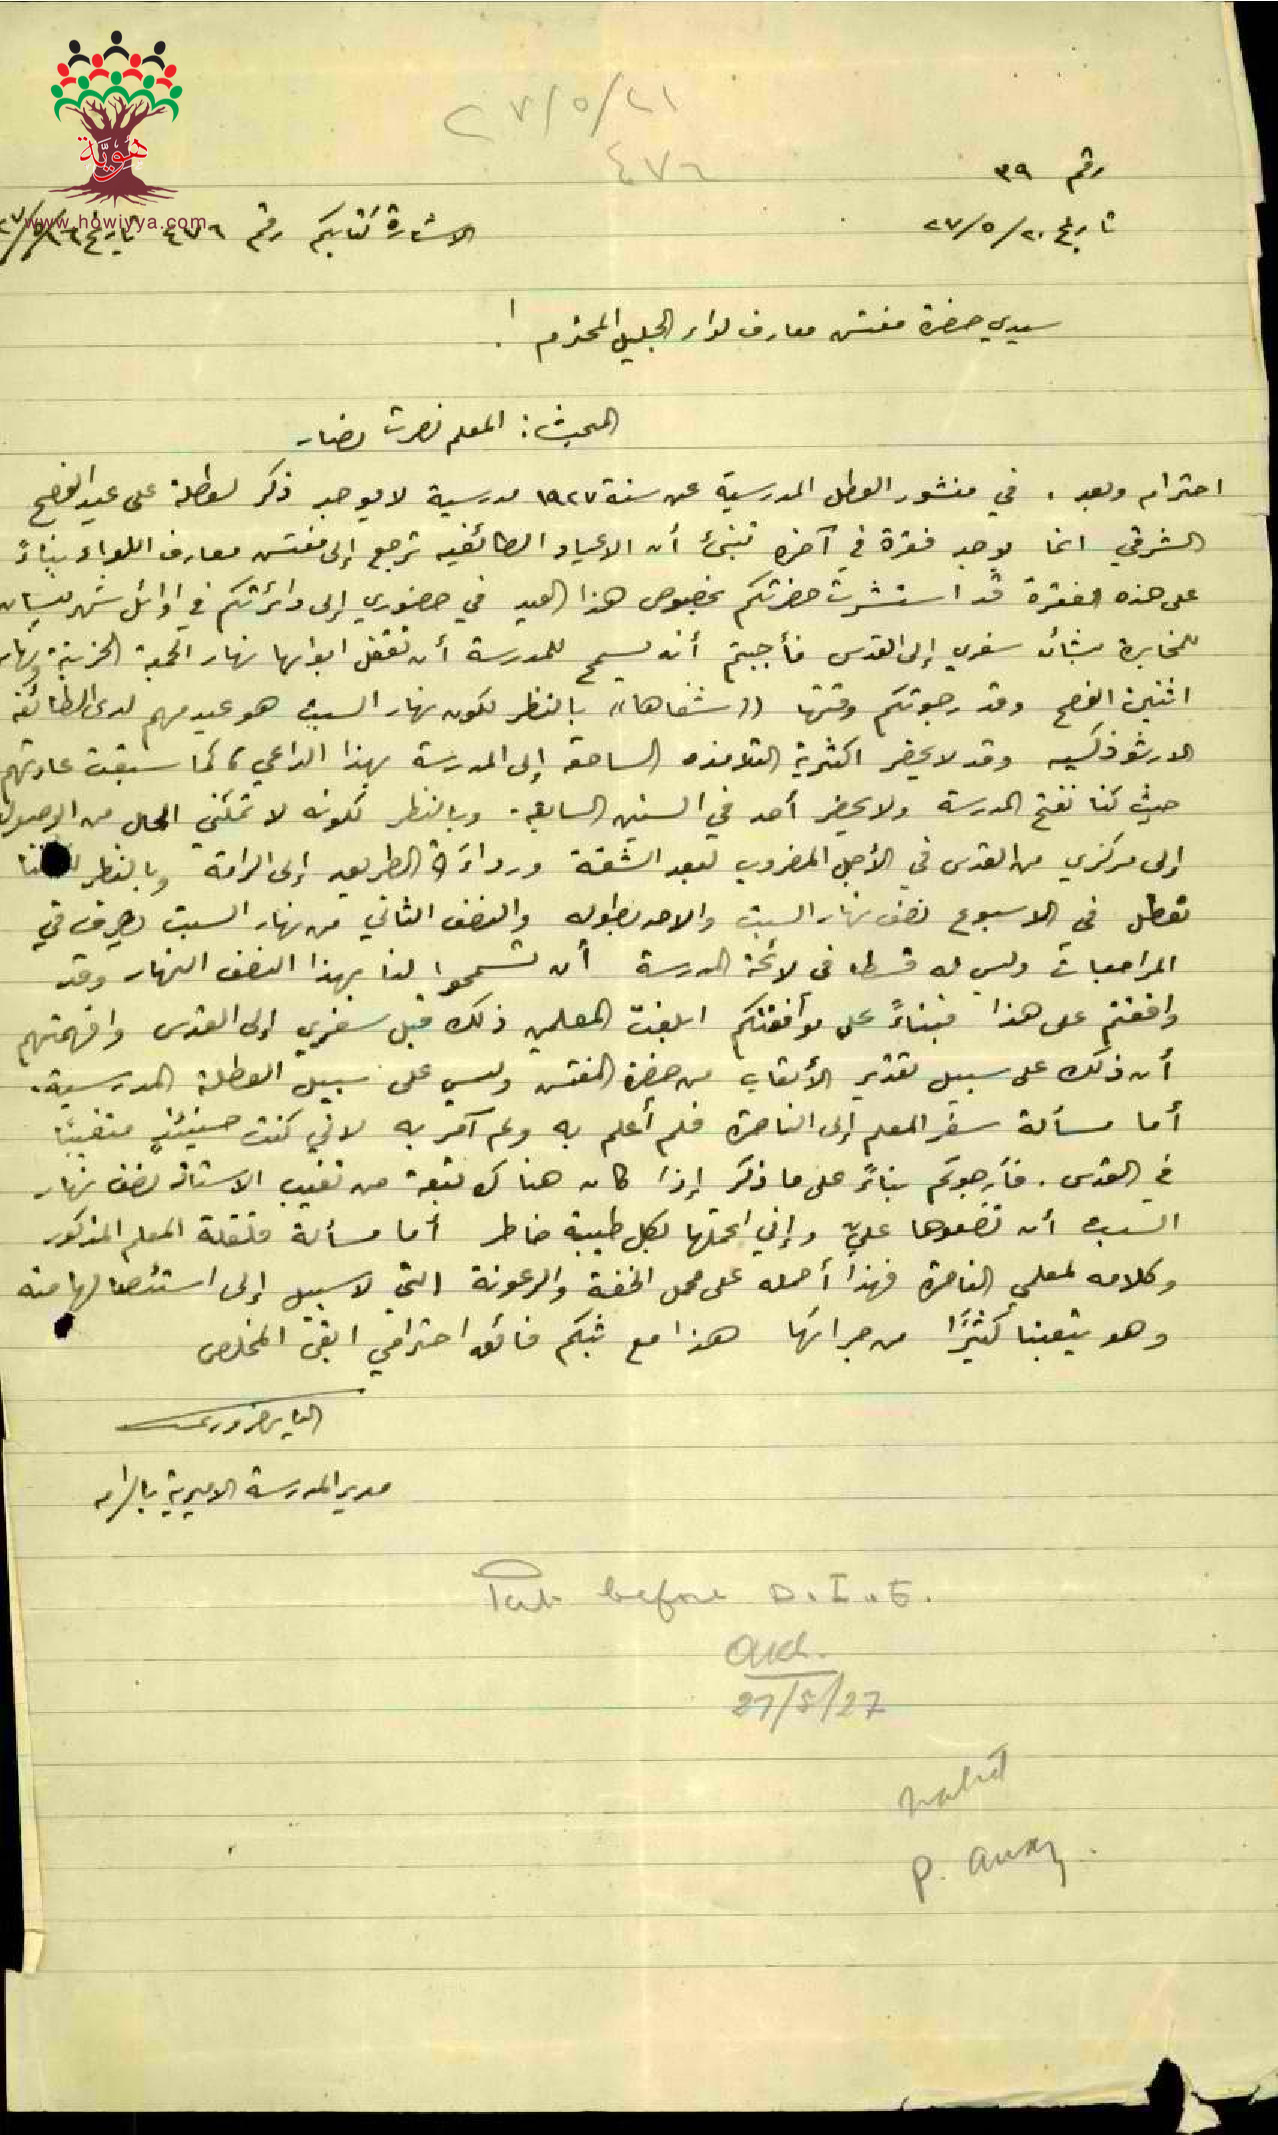 هوية
www.howiyya.com
٢٧/٥/٢١
٤٧٦
رقم ٣٩
تاريخ ٢٠/٥/٢٧
الاشارة كتابكم رقم ٤٧٦ تاريخ ١٦/٥/٢٧
سيدي حضرة مفتش معارف لواء الجليل المحترم !
المبحث : المعلم نصرت نصار
احترام وبعد . في منشور العطل المدرسية عن سنة ١٩٢٧ مدرسية لا يوجد ذكر لعطلة على عيد الفصح
الشرقي انما يوجد فقرة في آخره تنبئ أن الاعياد الطائفيه ترجع إلى مفتش معارف اللواء بناءً
على هذه الفقرة قد استشرت حضرتكم بخصوص هذا العيد في حضوري إلى دائرتكم في اوائل شهر نيسان
للمخابرة بشأن سفري إلى القدس فأجبتم أنه يسمح للمدرسة أن تقفل ابوابها نهار الجمعة الحزينة ونهار
اثنين الفصح وقد رجوتكم وقتها ((شفاها)) بالنظر لكون نهار السبت هو عيد مهم لدى الطائفة
الارثوذكسيه وقد لا يحضر اكثرية التلامذه إلى المدرسة بهذا الداعي ، كما سبقت عادتهم
حيث كنا نفتح المدرسة ولا يحضر أحد في السنين السابقة . وبالنظر لكونه لا تمكنني الحال من الوصول
إلى مركزي من القدس في الأجل المضروب لبعد الشقة ورداءة الطريق إلى الرامة وبالنظر
نعطل في الاسبوع نصف نهار السبت والاحد بطوله والنصف الثاني من نهار السبت يصرف في
المراجعات وليس له قسط في لائحة المدرسة أن تسمحوا لنا بهذا النصف النهار وقد
وافقتم على هذا فبناءً على موافقتكم ابلغت المعلمين ذلك قبل سفري إلى القدس وافهمتهم
أن ذلك على سبيل تقدير الأتعاب من حضرة المفتش وليس على سبيل العطلة المدرسية .
أما مسألة سفر المعلم إلى الناصرة فلم أعلم به ولم آمر به لاني كنت حينئذٍ متغيبًا
في القدس . فأرجوكم بناءً على ما ذكر إذا كان هناك تبعة من تغيب الاستاذ نصف نهار
السبت أن تضعوها عليّ وإني اتحملها بكل طيبة خاطر أما مسألة قلقلة المعلم المذكور
وكلامه لمعلمي الناصرة فهذا أحمله على محمل الخفة والرعونة التي لا سبيل إلى استئصالها منه
وهو يتعبنا كثيرًا من جرائها هذا مع ثبكم فائق احترامي ابقى المخلص
مدير المدرسة الاميرية بالرامه
before D.I.E.
27/5/27
noted
P. away.